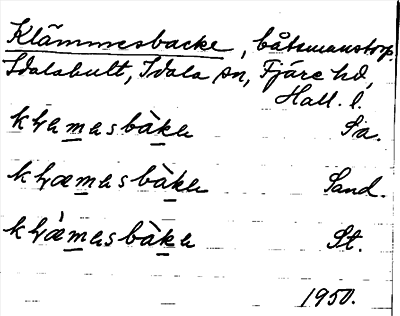 Klämmesbacke, båtsmanstorp.
Idalabult, Idala sn, Fjäre hd,
Hall. l.
klæmasbàka Sa.
klæmasbàka Sand.
klæ̀masbàka St.
1950.